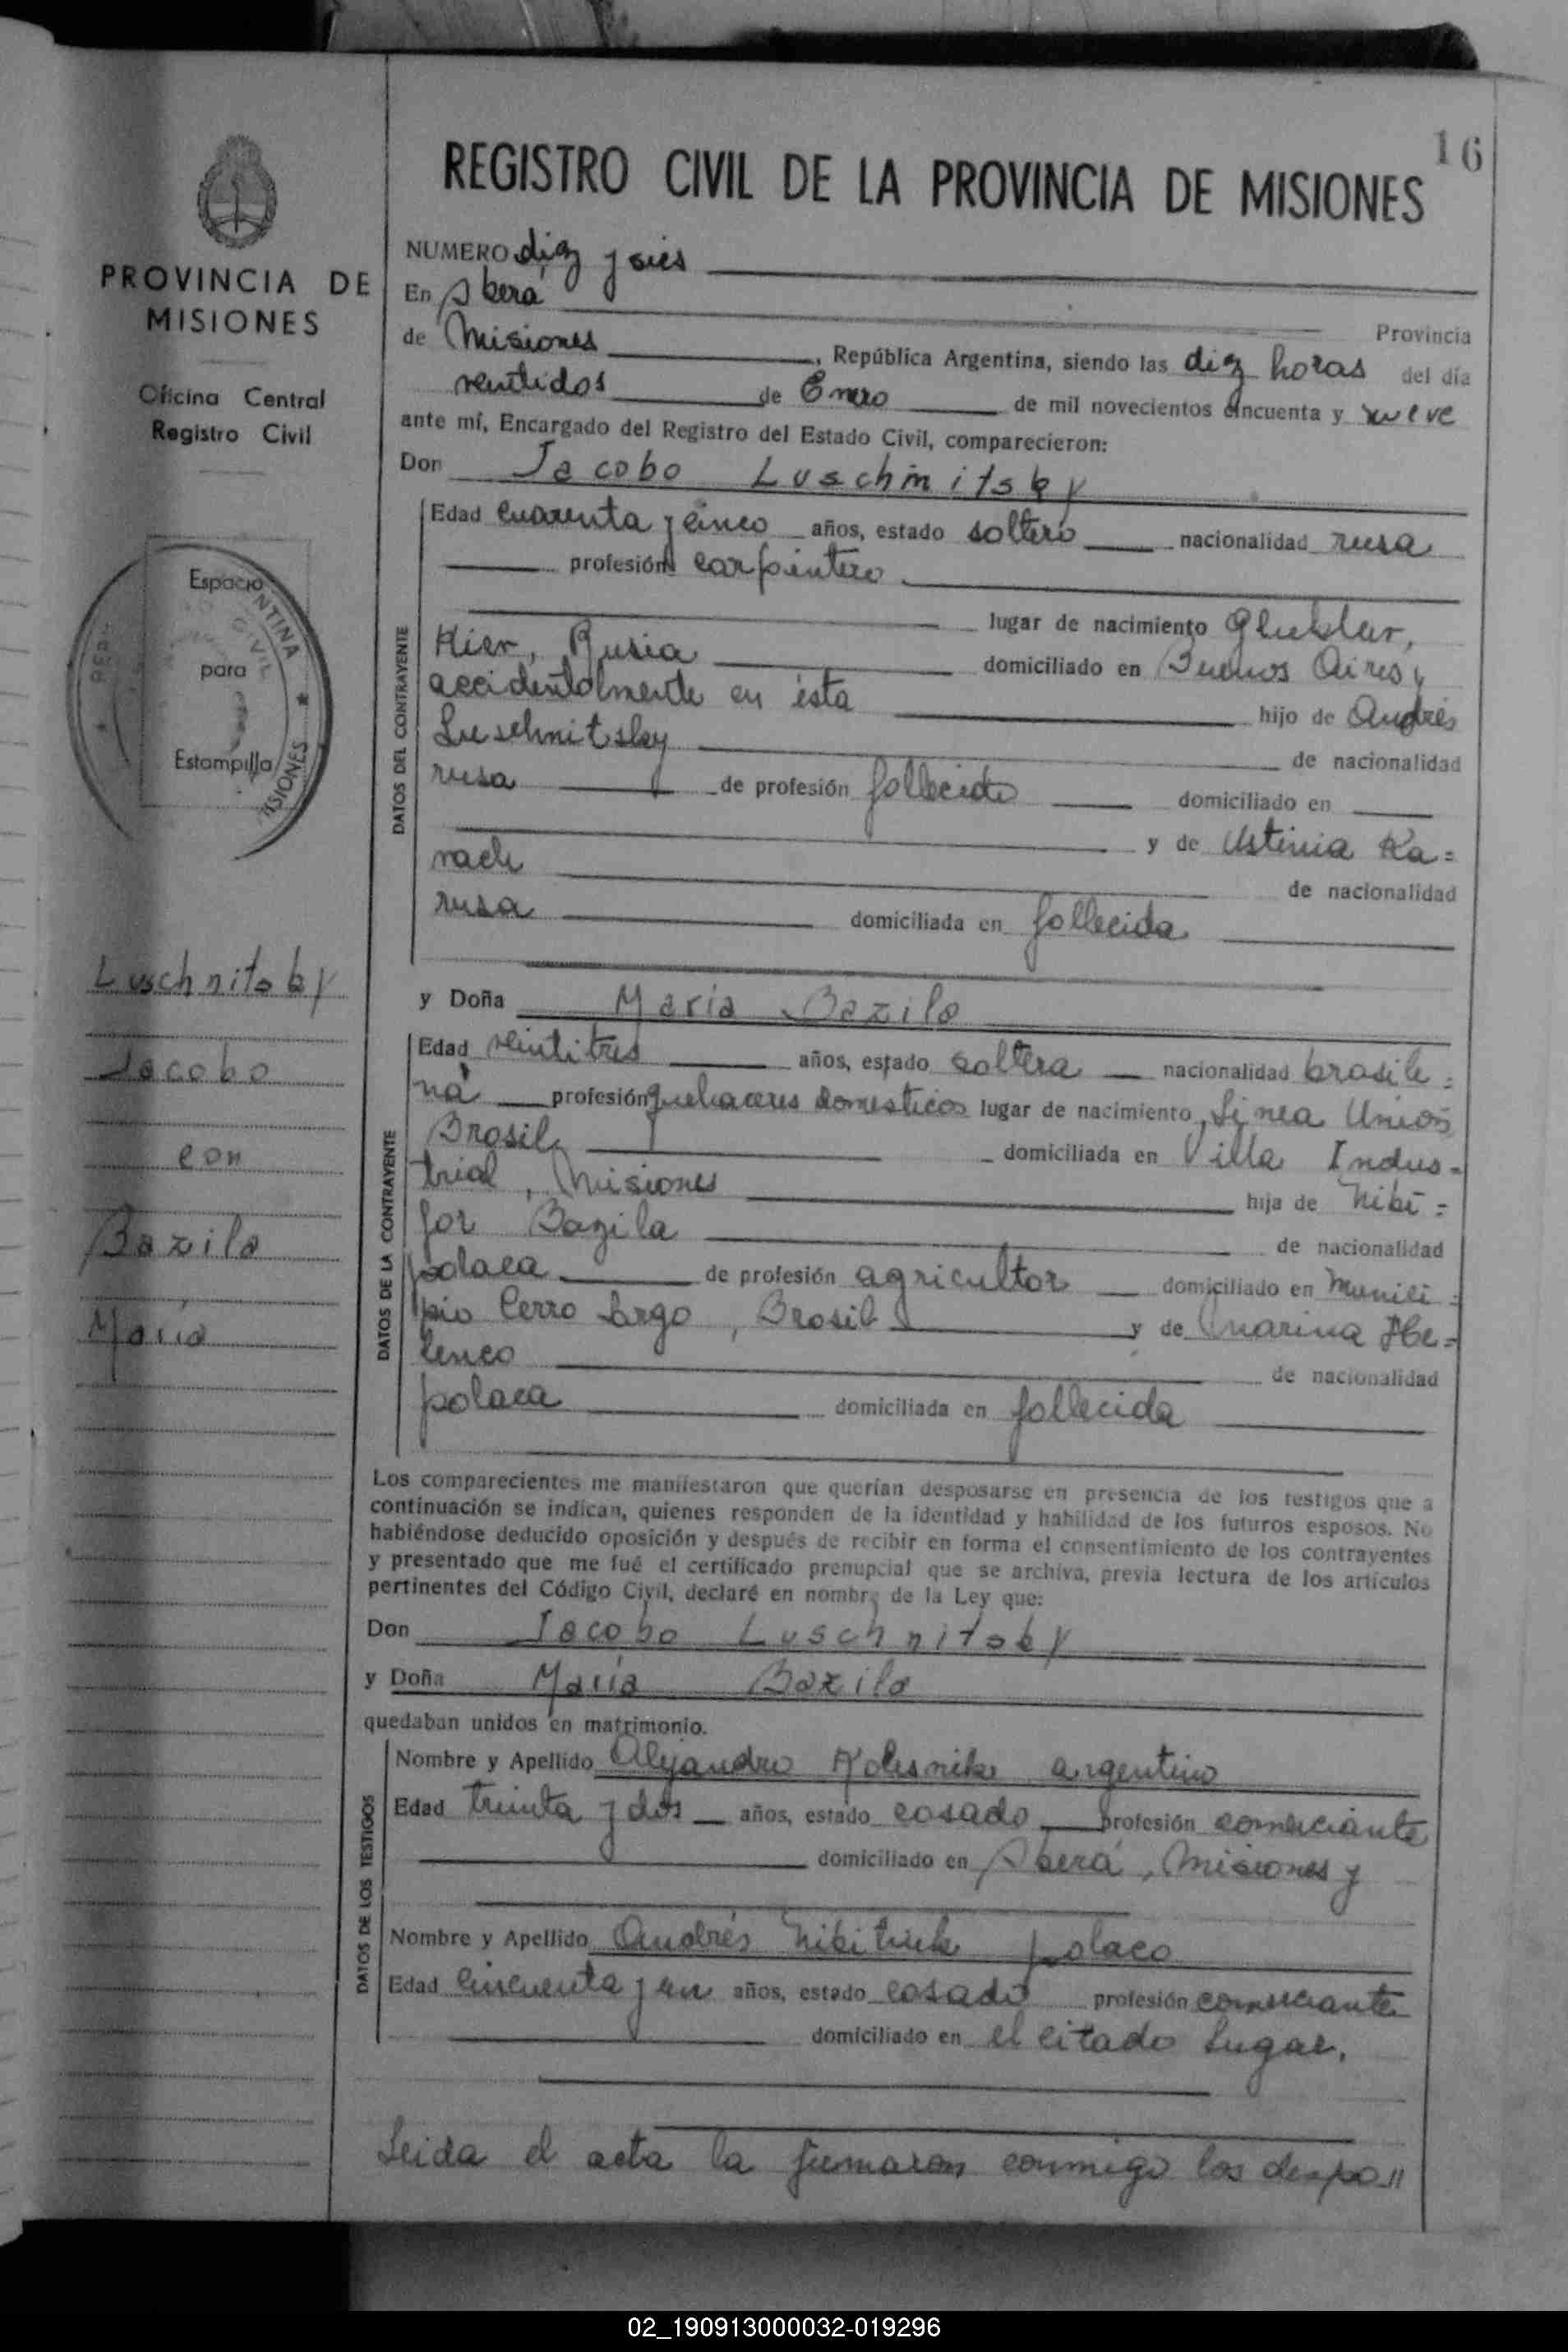 16
REGISTRO CIVIL DE LA PROVINCIA DE MISIONES
PROVINCIA DE
MISIONES
Oficina Central
Registro Civil
Espacio
para
Estampilla
Luschnitsky
Jacobo
con
Bazila
María
NUMERO diez y seis
En Oberá Provincia
de Misiones, República Argentina, siendo las diez horas del día
veintidos de Enero de mil novecientos cincuenta y nueve
ante mí, Encargado del Registro del Estado Civil, comparecieron:
Don Jacobo Luschnitsky
DATOS DEL CONTRAYENTE
Edad cuarenta y cinco años, estado soltero nacionalidad rusa
profesión carpintero
lugar de nacimiento
Kiev, Rusia domiciliado en Buenos Aires y
accidentalmente en ésta hijo de Andrés
Luschnitsky de nacionalidad
rusa de profesión fallecido domiciliado en
y de Ustinia Ka=
rach de nacionalidad
rusa domiciliada en fallecida
y Doña María Bazila
DATOS DE LA CONTRAYENTE
Edad veintitres años, estado soltera nacionalidad brasile=
ña profesión quehaceres domesticos lugar de nacimiento Linea Unión
Brasil domiciliada en Villa Indus=
trial, Misiones hija de Niki=
for Bazila de nacionalidad
polaca de profesión agricultor domiciliado en Munici=
pio Cerro Largo, Brasil y de Marina
lenco de nacionalidad
polaca domiciliada en fallecida
Los comparecientes me manifestaron que querían desposarse en presencia de los testigos que a
continuación se indican, quienes responden de la identidad y habilidad de los futuros esposos. No
habiéndose deducido oposición y después de recibir en forma el consentimiento de los contrayentes
y presentado que me fué el certificado prenupcial que se archiva, previa lectura de los artículos
pertinentes del Código Civil, declaré en nombre de la Ley que:
Don Jacobo Luschnitsky
y Doña María Bazila
quedaban unidos en matrimonio.
DATOS DE LOS TESTIGOS
Nombre y Apellido Alejandro Kolesnik argentino
Edad treinta y dos años, estado casado profesión comerciante
domiciliado en Oberá, Misiones y
Nombre y Apellido Andrés Nikitiuk polaco
Edad cincuenta y un años, estado casado profesión comerciante
domiciliado en el citado lugar.
Leida el acta la firmaron conmigo los despo//
02_190913000032-019296